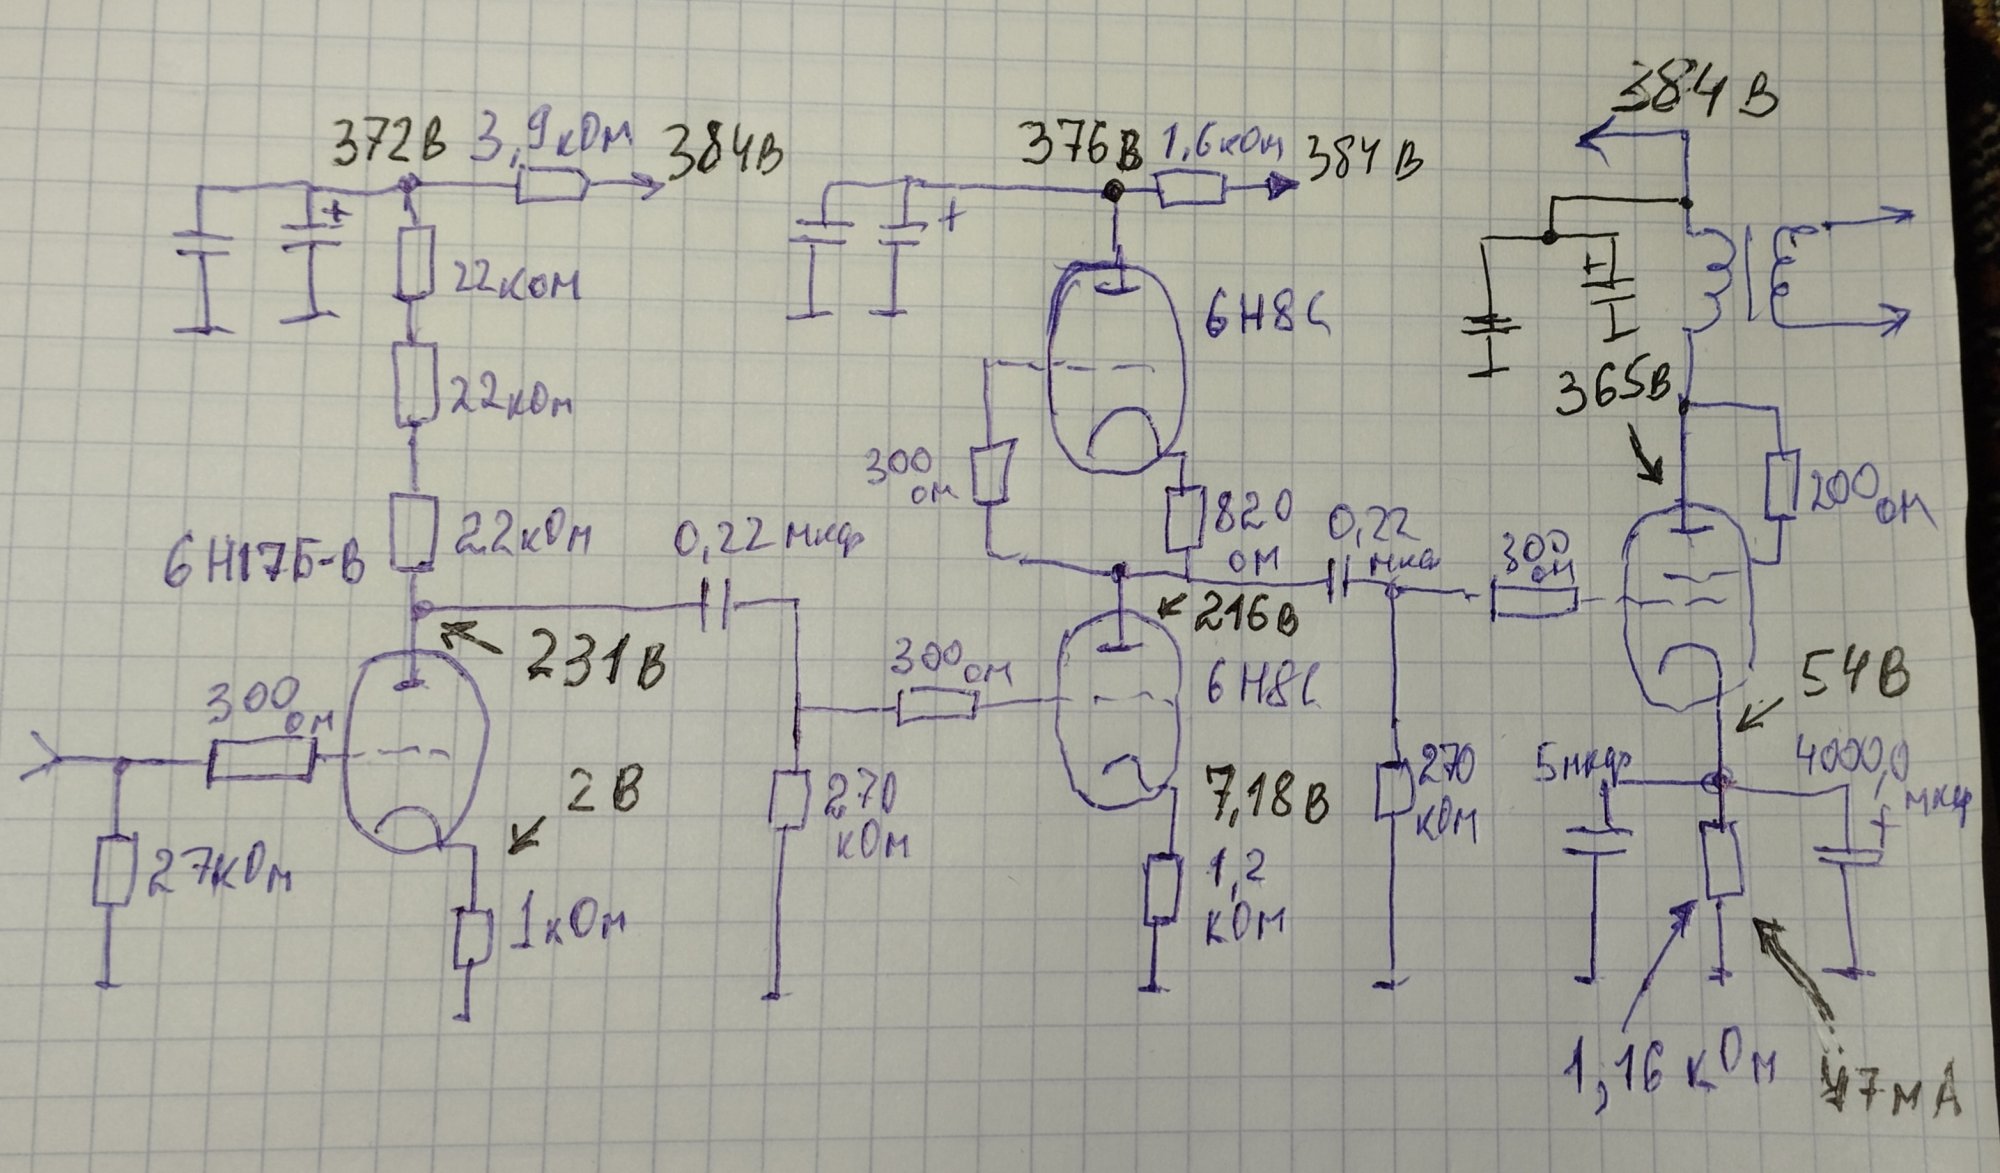 372В 3,9кОм 384В
+
22кОм
22кОм
22кОм
6Н17Б-В
0,22 мкф
231В
300 ом
2В
27кОм
1кОм
376В 1,6кОм 384В
+
6Н8С
300 ом
820 ом
0,22 мкф
216В
300 ом
6Н8С
270 кОм
7,18В
1,2 кОм
384В
+
365В
200 ом
300 ом
54В
270 кОм
5мкф
4000,0 мкф
+
1,16 кОм
47мА